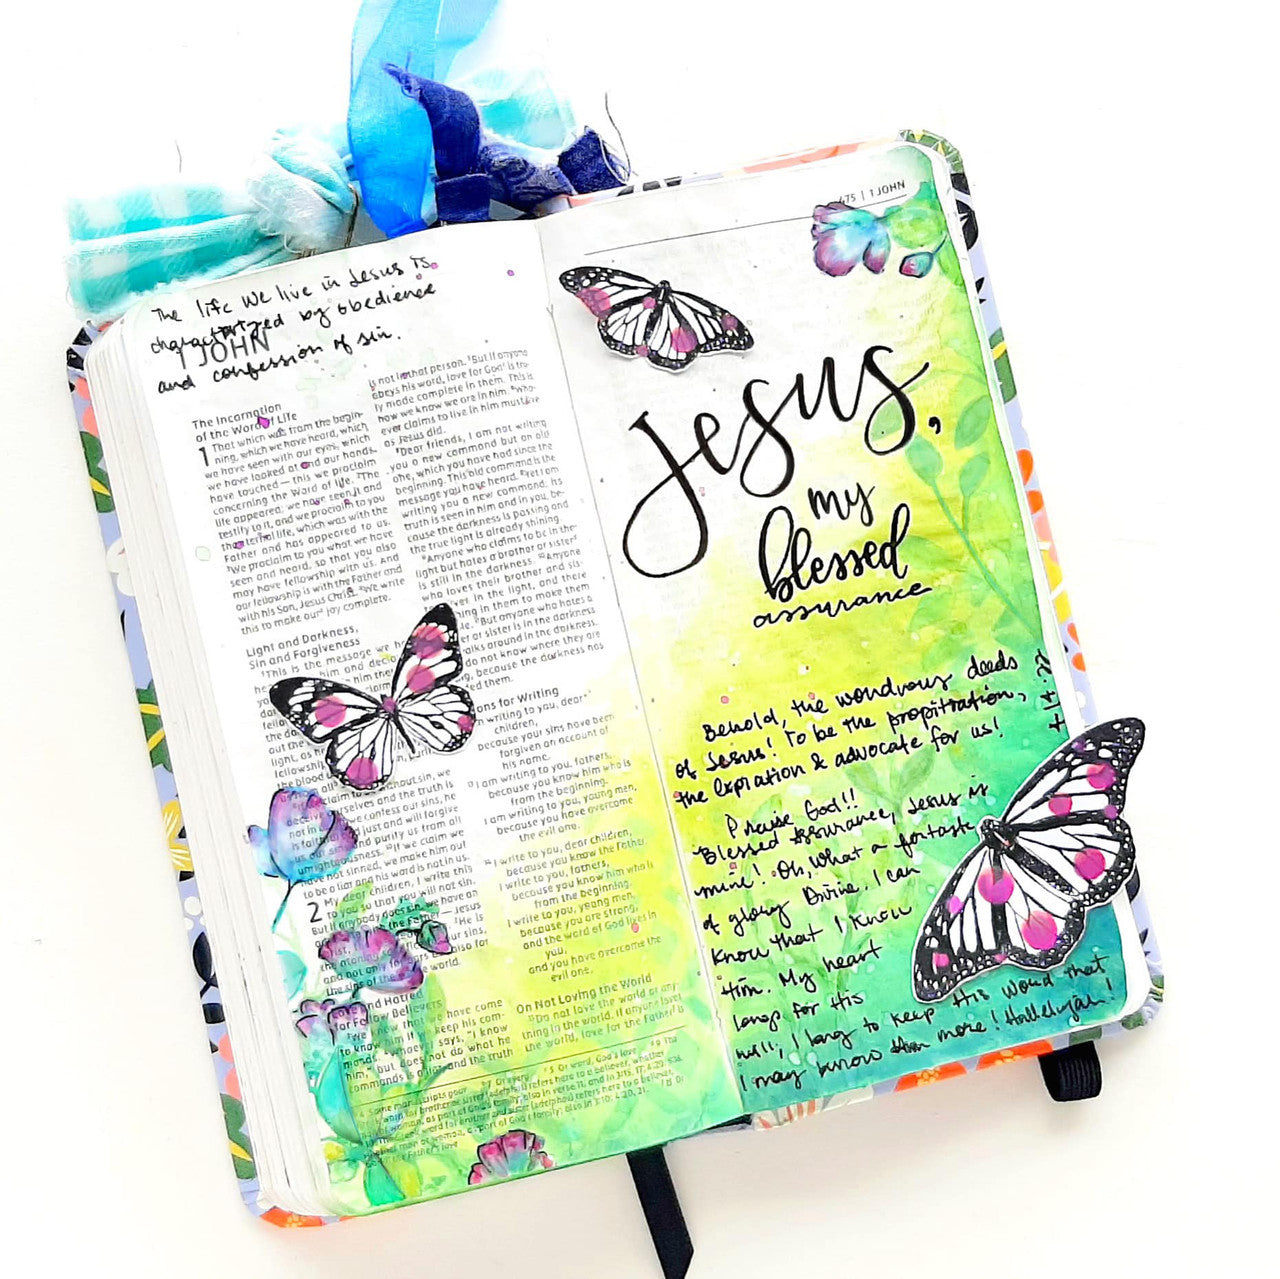 The life we live in Jesus is
by obedience
and confession of sin.
1 JOHN
The Incarnation
of the Word of Life
1 That which was from the begin-
ning, which we have heard, which
we have seen with our eyes, which
we have looked at and our hands
have touched—this we proclaim
concerning the Word of life. The
life appeared; we have seen it and
testify to it, and we proclaim to you
the eternal life, which was with the
Father and has appeared to us.
We proclaim to you what we have
seen and heard, so that you also
may have fellowship with us. And
our fellowship is with the Father and
with his Son, Jesus Christ. We write
this to make our joy complete.
Light and Darkness,
Sin and Forgiveness
This is the message we
him and
fellowship
the blood
out sin, we
ourselves and the truth is
not in us. If we confess our sins, he
is faithful just and will forgive
us our and purify us from all
unrighteousness. If we claim we
have not sinned, we make him out
to be a liar and his word is not in us.
2 My dear children, I write this
to you so that you will not sin.
But if anybody does sin, we have an
with the Father—Jesus
He is
our sins,
and not only for also for
the sins of the world.
and Hatred
for Fellow Believers
We know that we have come
to know him if we keep his com-
mands. Whoever says, "I know
him," but does not do what he
commands is a liar, and the truth
is not in that person. But if anyone
obeys his word, love for God is tru-
ly made complete in them. This is
how we know we are in him: Who-
ever claims to live in him must live
as Jesus did.
Dear friends, I am not writing
you a new command but an old
one, which you have had since the
beginning. This old command is the
message you have heard. Yet I am
writing you a new command; its
truth is seen in him and in you, be-
cause the darkness is passing and
the true light is already shining.
Anyone who claims to be in the
light but hates a brother or sister
is still in the darkness. Anyone
who loves their brother and sis-
ter lives in the light, and there
in them to make them
But anyone who hates a
or sister is in the darkness
walks around in the darkness.
do not know where they are
because the darkness has
them.
for Writing
writing to you, dear
children,
because your sins have been
forgiven on account of
his name.
I am writing to you, fathers,
because you know him who is
from the beginning.
I am writing to you, young men,
because you have overcome
the evil one.
I write to you, dear children,
because you know the Father.
I write to you, fathers,
because you know him who is
from the beginning.
I write to you, young men,
because you are strong,
and the word of God lives in
you,
and you have overcome the
evil one.
On Not Loving the World
Do not love the world or any-
thing in the world. If anyone loves
the world, love for the Father
675 | 1 JOHN
Jesus,
my
blessed
assurance
Behold, the wondrous deeds
of Jesus! To be the propitiation,
the expiation & advocate for us!
Praise God!!
Blessed assurance, Jesus is
mine! Oh, what a foretaste
of glory Divine. I can
know that I know
Him. My heart
longs for His
will; I long to keep His Word that
I may know Him more! Hallelujah!